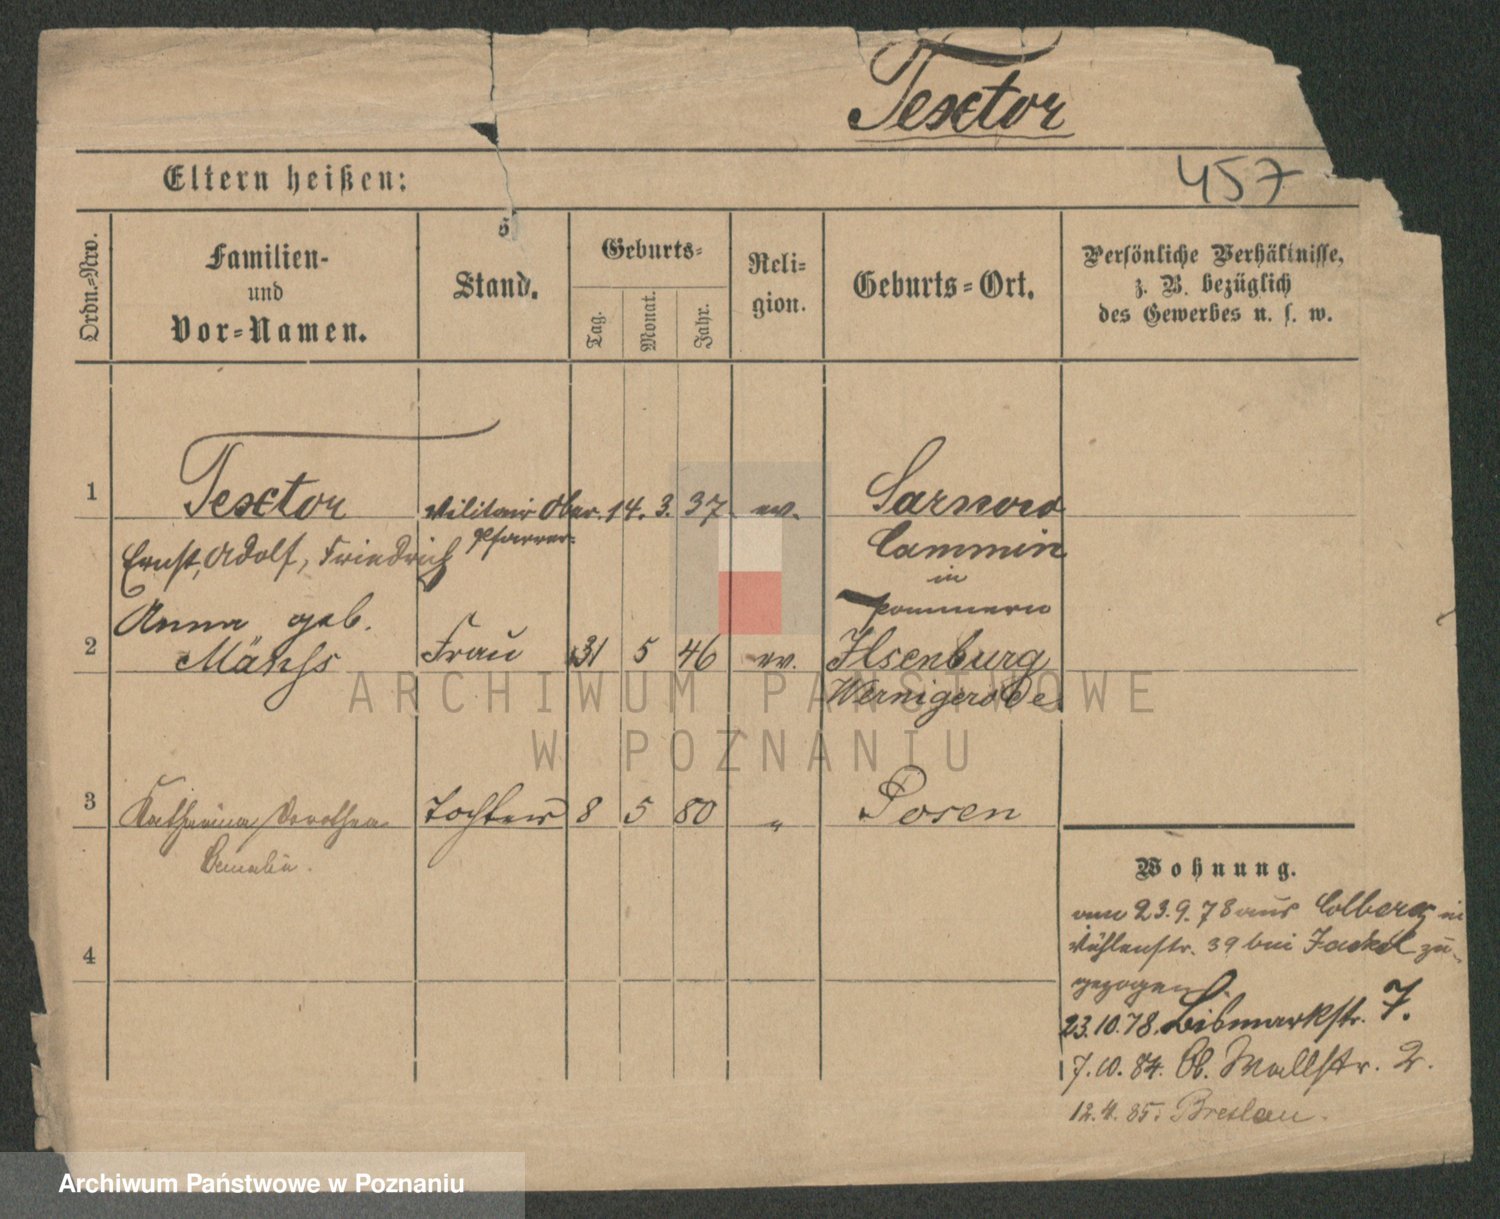 Textor
457
Eltern heißen:
Ordn.-Nro.
Familien-
und
Vor-Namen.
Stand.
Geburts-
Tag.
Monat.
Jahr.
Reli-
gion.
Geburts-Ort.
Persönliche Verhältnisse,
z. B. bezüglich
des Gewerbes u. s. w.
1
Textor
Militair Ober 14. 3. 37 ev. Sarnow
Ernst, Adolf, Friedrich
Pfarrer
Cammin
in
Pommern
Anna geb.
2
Frau 31 5 46 ev. Ilsenburg
Wernigerode
3
Katharina Dorothea Tochter 8 5 80 " Posen
4
Wohnung.
am 23.9.78 aus Colberg in
Mühlenstr. 39 bei Jaekel zu-
gezogen.
23.10.78. Bismarkstr. 7.
7.10.84. Ob. Wallstr. 2.
12.4.85. Breslau.
ARCHIWUM PAŃSTWOWE
W POZNANIU
Archiwum Państwowe w Poznaniu